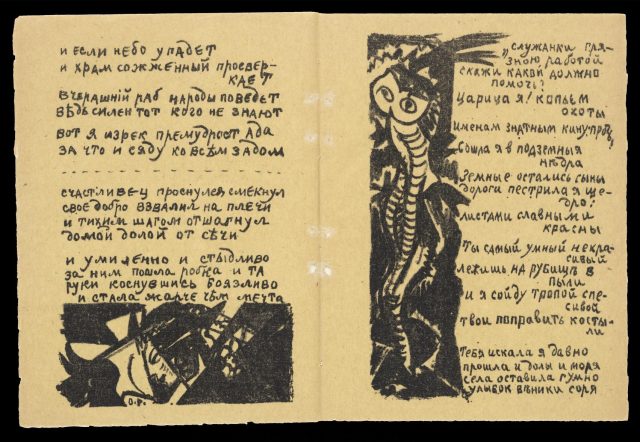 и если небо упадет
и храм сожженный просвер-
кает
вчерашнiй раб народы поведет
вѣдь силен тот кого не знают
вот я изрек премудрост ада
за что и сяду ко всѣм задом
счастливец проснулся смекнул
свое добро взвалил на плечи
и тихим шагом отшагнул
домой долой от сѣчи
и умиленно и стыдливо
за ним пошла робка и та
руки коснувшись боязливо
и стала жарче чѣм мечта
О.Р.
„служанки гря-
зною работой
скажи какой должно
помочь?
Царица я! копьем
охоты
именам знатным кину
Сошла я в подземныя
нѣдра
Земные остались сыны
дороги пестрила я ще-
дро:
листами славными
красны
Ты самый умный некра-
сивый
лежишь на рубищѣ в
пыли
и я сойду тропой спе-
сивой
твои поправить косты-
ли
Тебя искала я давно
прошла и долы и моря
села оставила гумно
улыбок вѣники соря